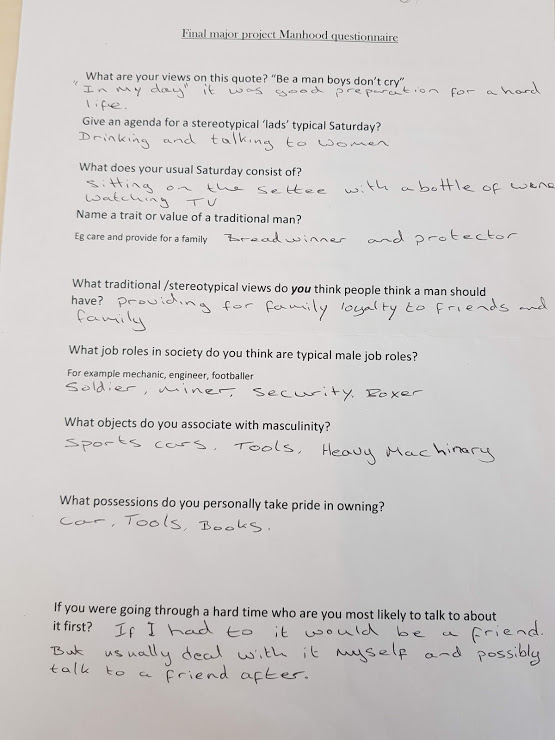 Final major project Manhood questionnaire
What are your views on this quote? “Be a man boys don’t cry”
"In my day" it was good preparation for a hard
life.
Give an agenda for a stereotypical ‘lads’ typical Saturday?
Drinking and talking to women
What does your usual Saturday consist of?
Sitting on the settee with a bottle of wine
watching TV
Name a trait or value of a traditional man?
Eg care and provide for a family Breadwinner and protector
What traditional /stereotypical views do you think people think a man should
have? providing for family loyalty to friends and
family
What job roles in society do you think are typical male job roles?
For example mechanic, engineer, footballer
Soldier, miner, security, Boxer
What objects do you associate with masculinity?
Sports cars, Tools, Heavy Machinary
What possessions do you personally take pride in owning?
Car, Tools, Books.
If you were going through a hard time who are you most likely to talk to about
it first? If I had to it would be a friend.
But usually deal with it myself and possibly
talk to a friend after.